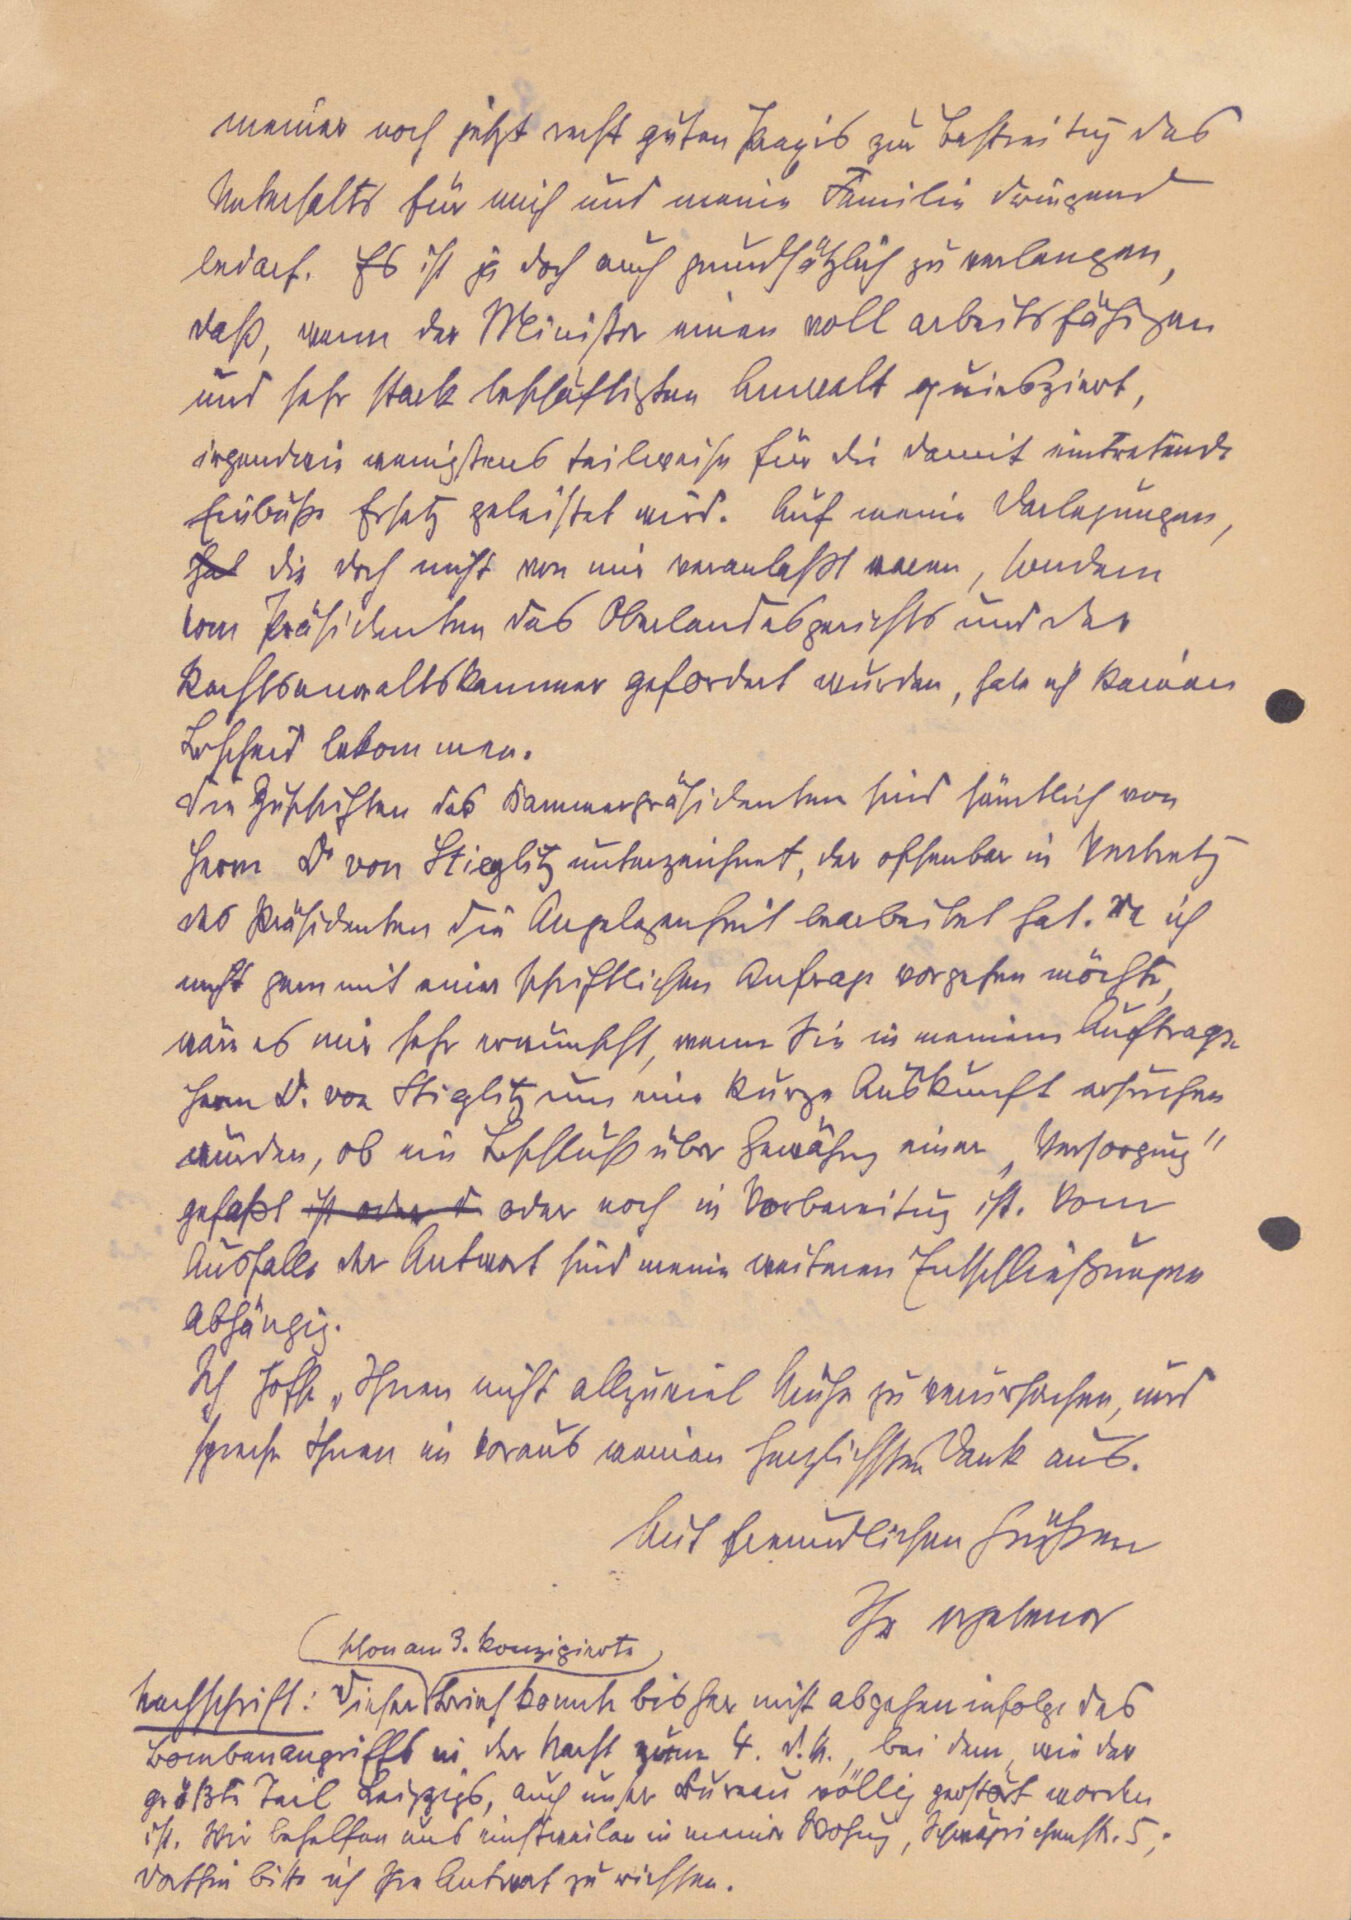 meiner noch jetzt recht guten Praxis zur Bestreitung des
Unterhalts für mich und meine Familie dringend
bedarf. Es ist ja doch auch grundsätzlich zu verlangen,
daß, wenn der Minister einen voll arbeitsfähigen
und sehr stark beschäftigten Anwalt quiesziert,
irgendwie wenigstens teilweise für die damit eintretende
Einbuße Ersatz geleistet wird. Auf meine Darlegungen,
hab die doch nicht von mir veranlaßt waren, sondern
vom Präsidenten des Oberlandesgerichts und der
Rechtsanwaltskammer gefordert wurden, habe ich keinen
Bescheid bekommen.
Die Zuschriften des Kammerpräsidenten sind sämtlich von
Herrn Dr von Stieglitz unterzeichnet, der offenbar in Vertretg
des Präsidenten die Angelegenheit bearbeitet hat. Da ich
nicht gern mit einer schriftlichen Anfrage vorgehen möchte,
wäre es mir sehr erwünscht, wenn Sie in meinem Auftrage
Herrn Dr. von Stieglitz um eine kurze Auskunft ersuchen
würden, ob ein Beschluß über Gewährg einer „Versorgung"
gefaßt ist oder d oder noch in Vorbereitung ist. Vom
Ausfalle der Antwort sind meine weiteren Entschließungen
abhängig.
Ich hoffe, Ihnen nicht allzuviel Mühe zu verursachen, und
spreche Ihnen im voraus meinen herzlichsten Dank aus.
Mit freundlichen Grüßen
Ihr ergebener
schon am 3. konzipierte
Nachschrift: Dieser Brief konnte bisher nicht abgehen infolge des
Bombenangriffs in der Nacht zum 4. d.M., bei dem, wie der
größte Teil Leipzigs, auch unser Bureau völlig zerstört worden
ist. Wir behelfen uns einstweilen in meiner Wohng, Schwägrichenstr. 5;
dorthin bitte ich Ihre Antwort zu richten.